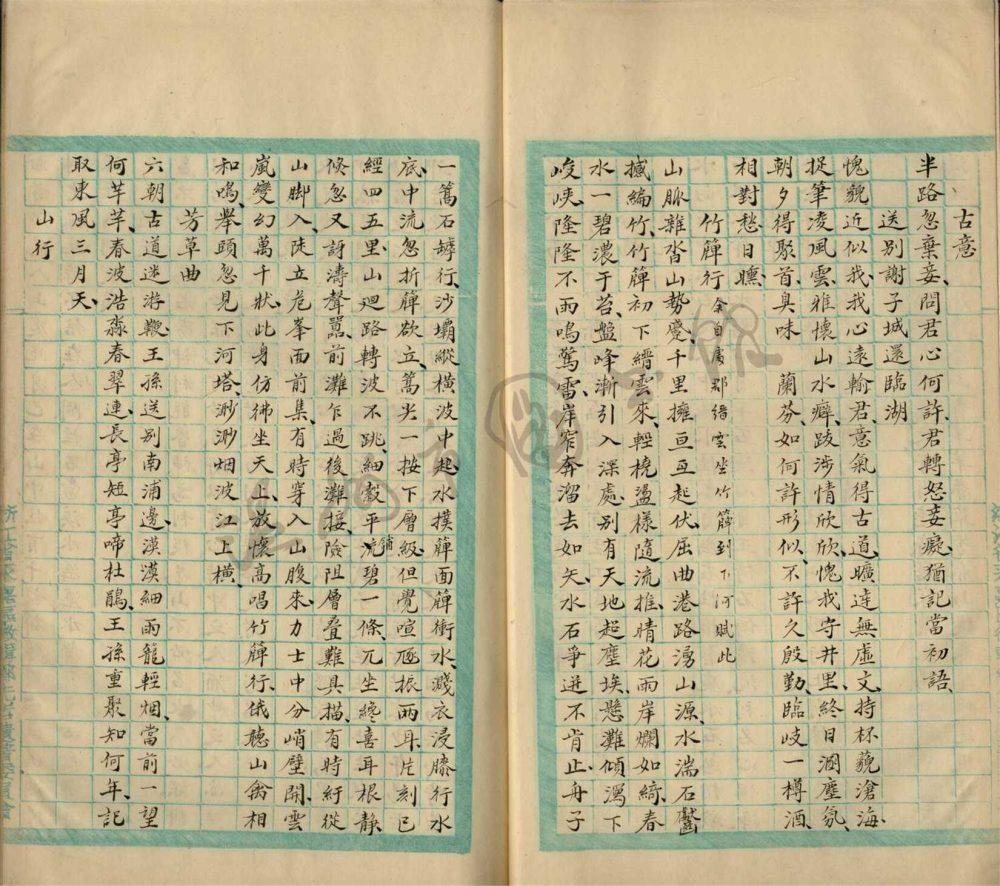 古意
半路忽棄妾、問君心何許、君轉怒妾癡、猶記當初語、
送別謝子城還臨湖
愧貌近似我、我心遠輸君、意氣得古道、曠達無虛文、持杯藐滄海、
捉筆凌風雲、雅懷山水癖、跋涉情欣欣、愧我守井里、終日溷塵氛、
朝夕得聚首、臭味 蘭芬、如何許形似、不許久殷勤、臨岐一樽酒、
相對愁日曛、
竹簰行 余自處郡縉雲坐竹簰到下河賦此
山脈雜沓山勢蹙、千里擁亘亘起伏、屈曲港路湧山源、水湍石齾
撼編竹、竹簰初下縉雲來、輕橈盪樣隨流推、晴花兩岸爛如綺、春
水一碧濃于苔、盤峰漸引入深處、別有天地超塵埃、懸灘傾瀉下
峻峽、隆隆不雨鳴驚雷、岸窄奔溜去如矢、水石爭迸不肯止、舟子
一篙石罅行、沙壩縱橫波中起、水撲簰面簰衝水、濺衣浸膝行水
底、中流忽折簰欲立、篙尖一按下層級、但覺喧豗振兩耳、片刻已
經四五里、山迴路轉波不跳、細縠平鋪碧一條、兀坐纔喜耳根靜、
倏忽又訝濤聲囂、前灘乍過後灘接、險阻層疊難具描、有時紆從
山脚入、陡立危峯面前集、有時穿入山腹來、力士中分峭壁開、雲
嵐變幻萬千狀、此身仿彿坐天上、放懷高唱竹簰行、俄聽山禽相
和鳴、舉頭忽見下河塔、渺渺烟波江上橫、
芳草曲
六朝古道迷游鞭、王孫送別南浦邊、漠漠細雨籠輕烟、當前一望
何芊芊、春波浩淼春翠連、長亭短亭啼杜鵑、王孫重聚知何年、記
取東風三月天、
山行